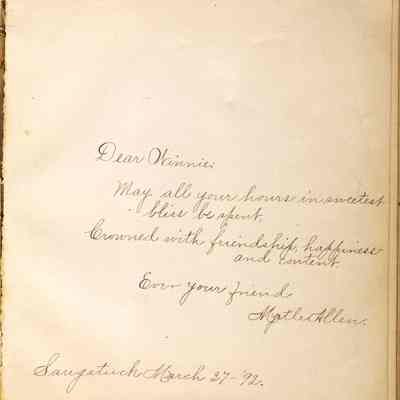 Dear Winnie:
May all your hours in sweetest
bliss be spent,
Crowned with friendship, happiness
and content.
Ever your friend
Allen.
Saugatuck March 27-'92.